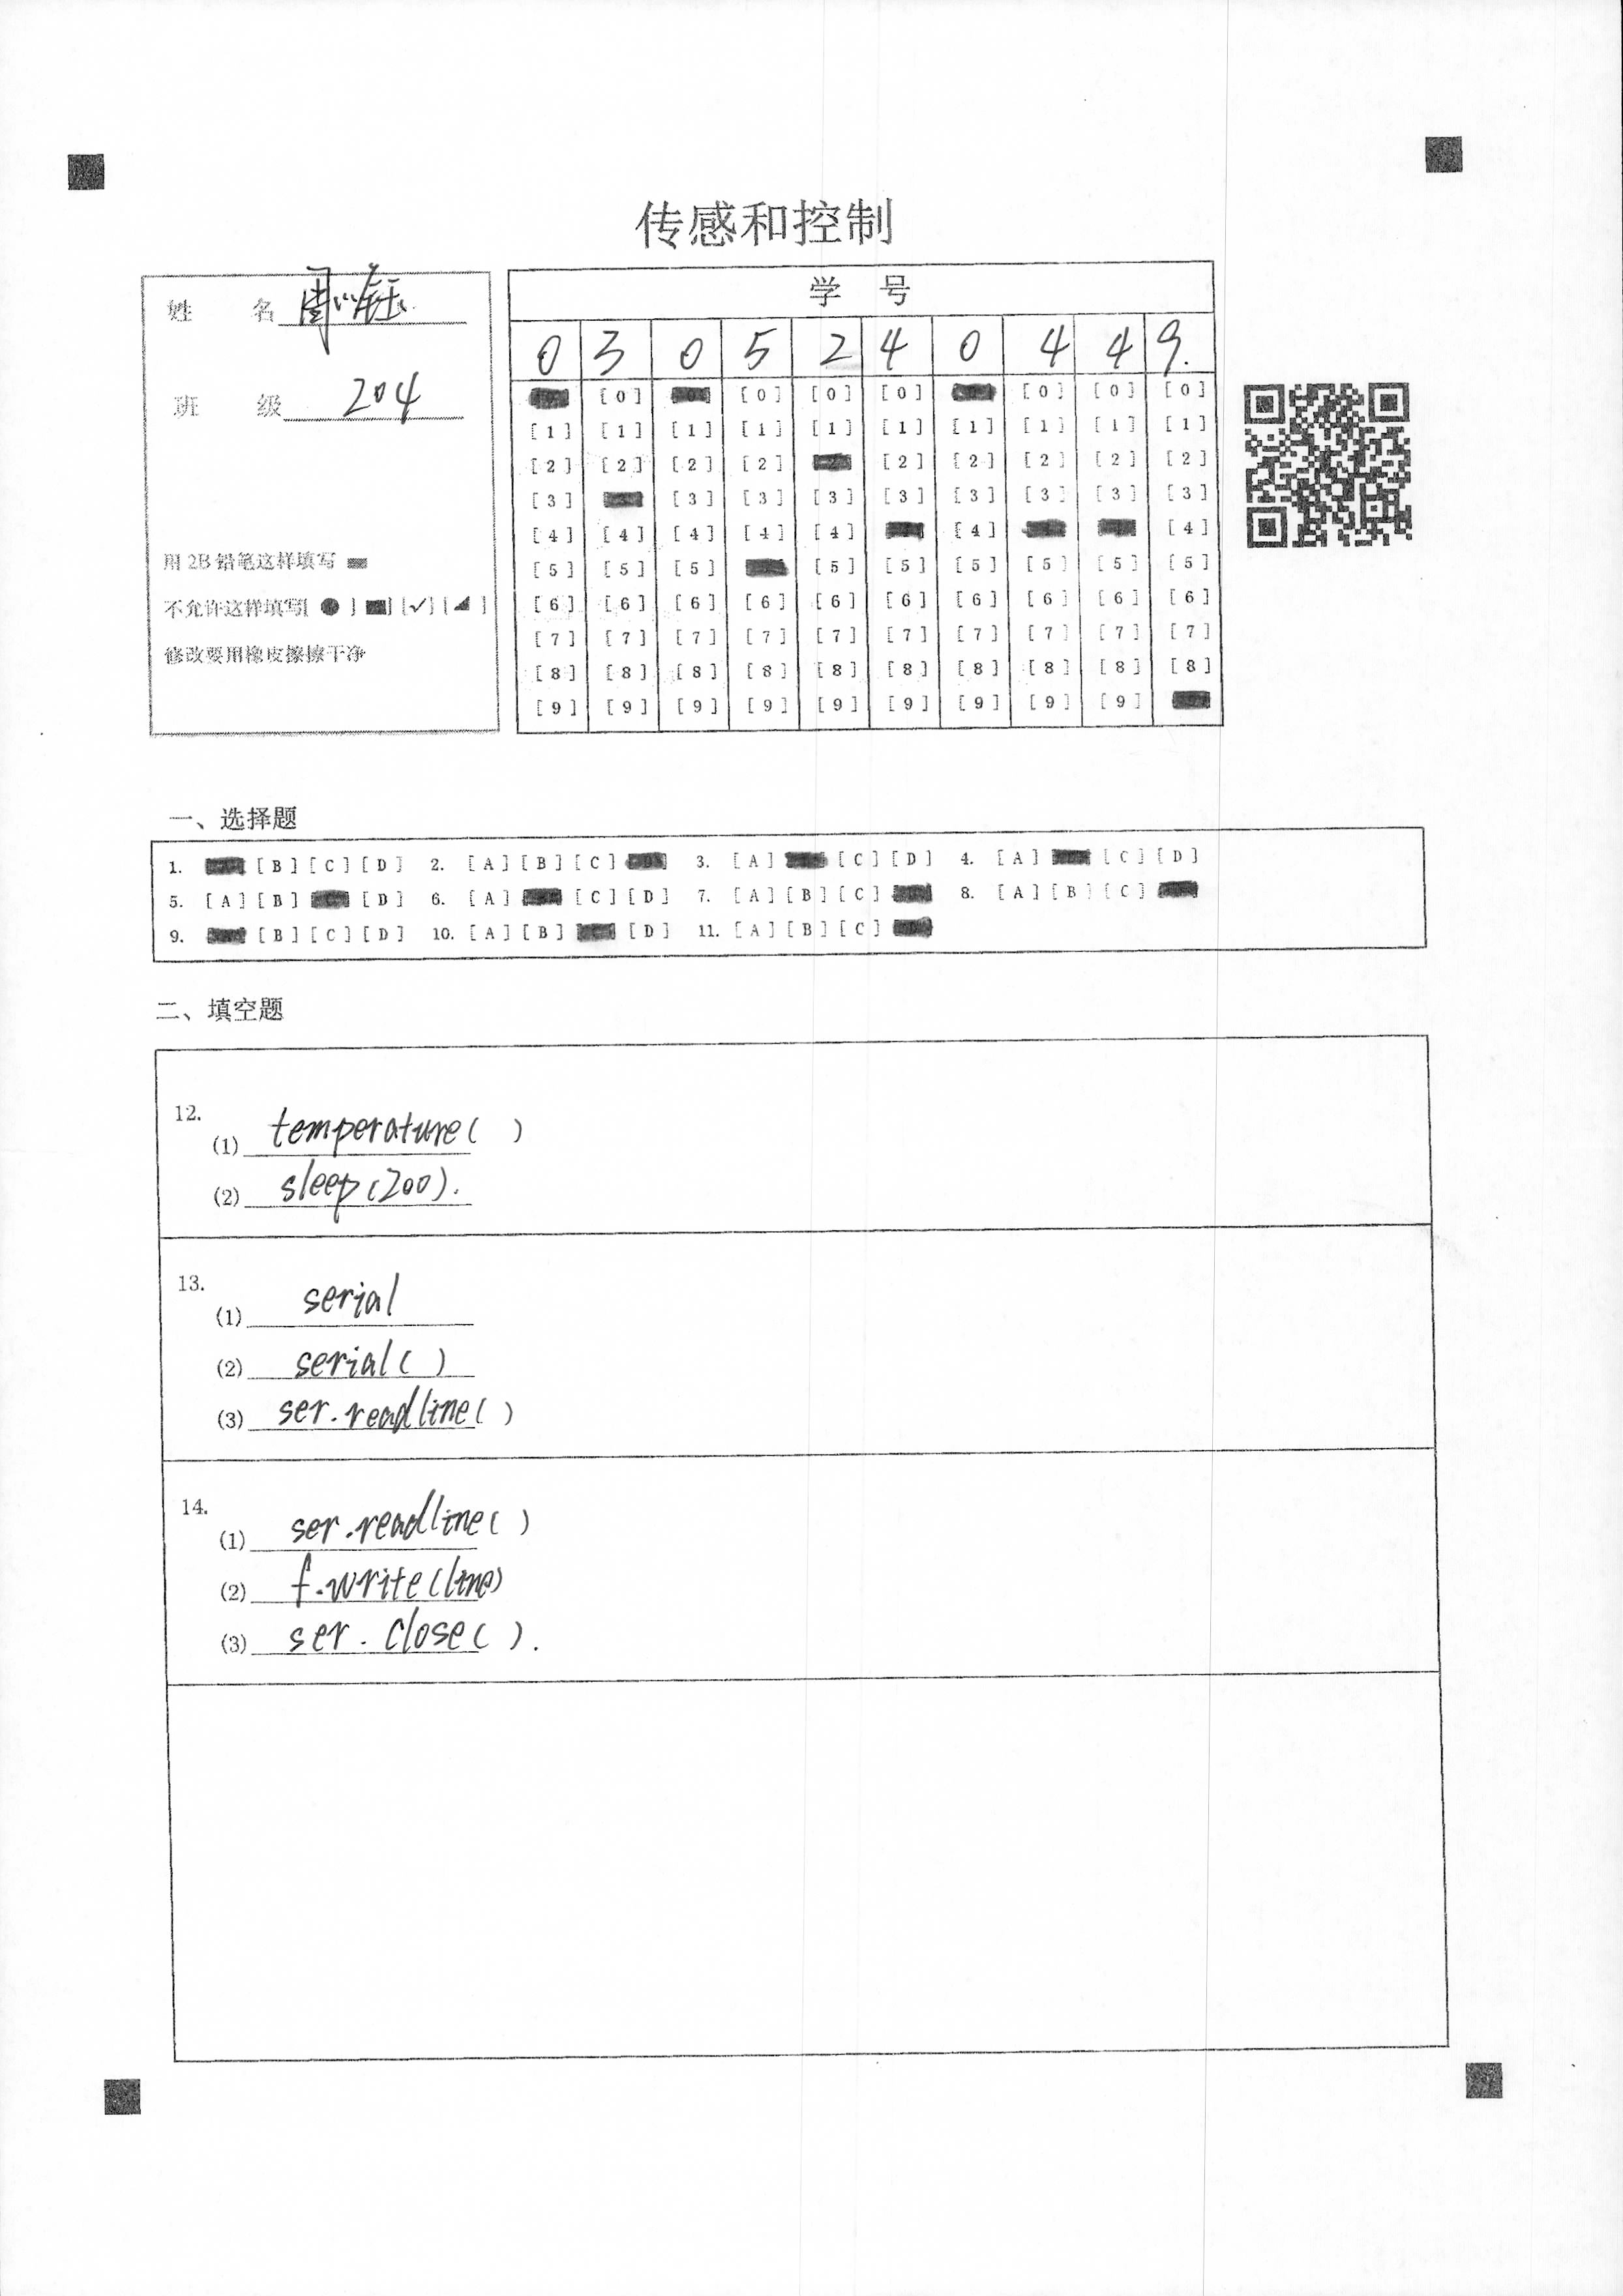 传感和控制
姓 名
班 级 204
用 2B 铅笔这样填写
不允许这样填写[ ● ] [■] [✓] [◢ ]
修改要用橡皮擦擦干净
学 号
0 3 0 5 2 4 0 4 4 9.
[0] [0] [0] [0] [0] [0] [0]
[1] [1] [1] [1] [1] [1] [1] [1] [1] [1]
[2] [2] [2] [2] [2] [2] [2] [2] [2]
[3] [3] [3] [3] [3] [3] [3] [3] [3]
[4] [4] [4] [4] [4] [4] [4]
[5] [5] [5] [5] [5] [5] [5] [5] [5]
[6] [6] [6] [6] [6] [6] [6] [6] [6] [6]
[7] [7] [7] [7] [7] [7] [7] [7] [7] [7]
[8] [8] [8] [8] [8] [8] [8] [8] [8] [8]
[9] [9] [9] [9] [9] [9] [9] [9] [9]
一、选择题
1. [B] [C] [D] 2. [A] [B] [C] 3. [A] [C] [D] 4. [A] [C] [D]
5. [A] [B] [D] 6. [A] [C] [D] 7. [A] [B] [C] 8. [A] [B] [C]
9. [B] [C] [D] 10. [A] [B] [D] 11. [A] [B] [C]
二、填空题
12.
(1) temperature( )
(2) sleep(200).
13.
(1) serial
(2) serial( )
(3) ser.readline( )
14.
(1) ser.readline( )
(2) f.write(line)
(3) ser.close( ).